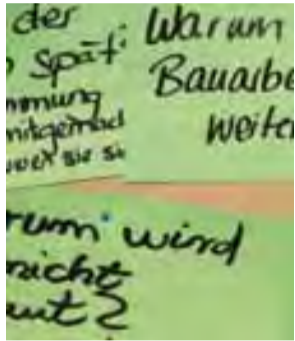 der
Spät
mmung
mitgemach
wer sie si
Warum
Bauarbe
weiter
rum wird
nicht
aut?